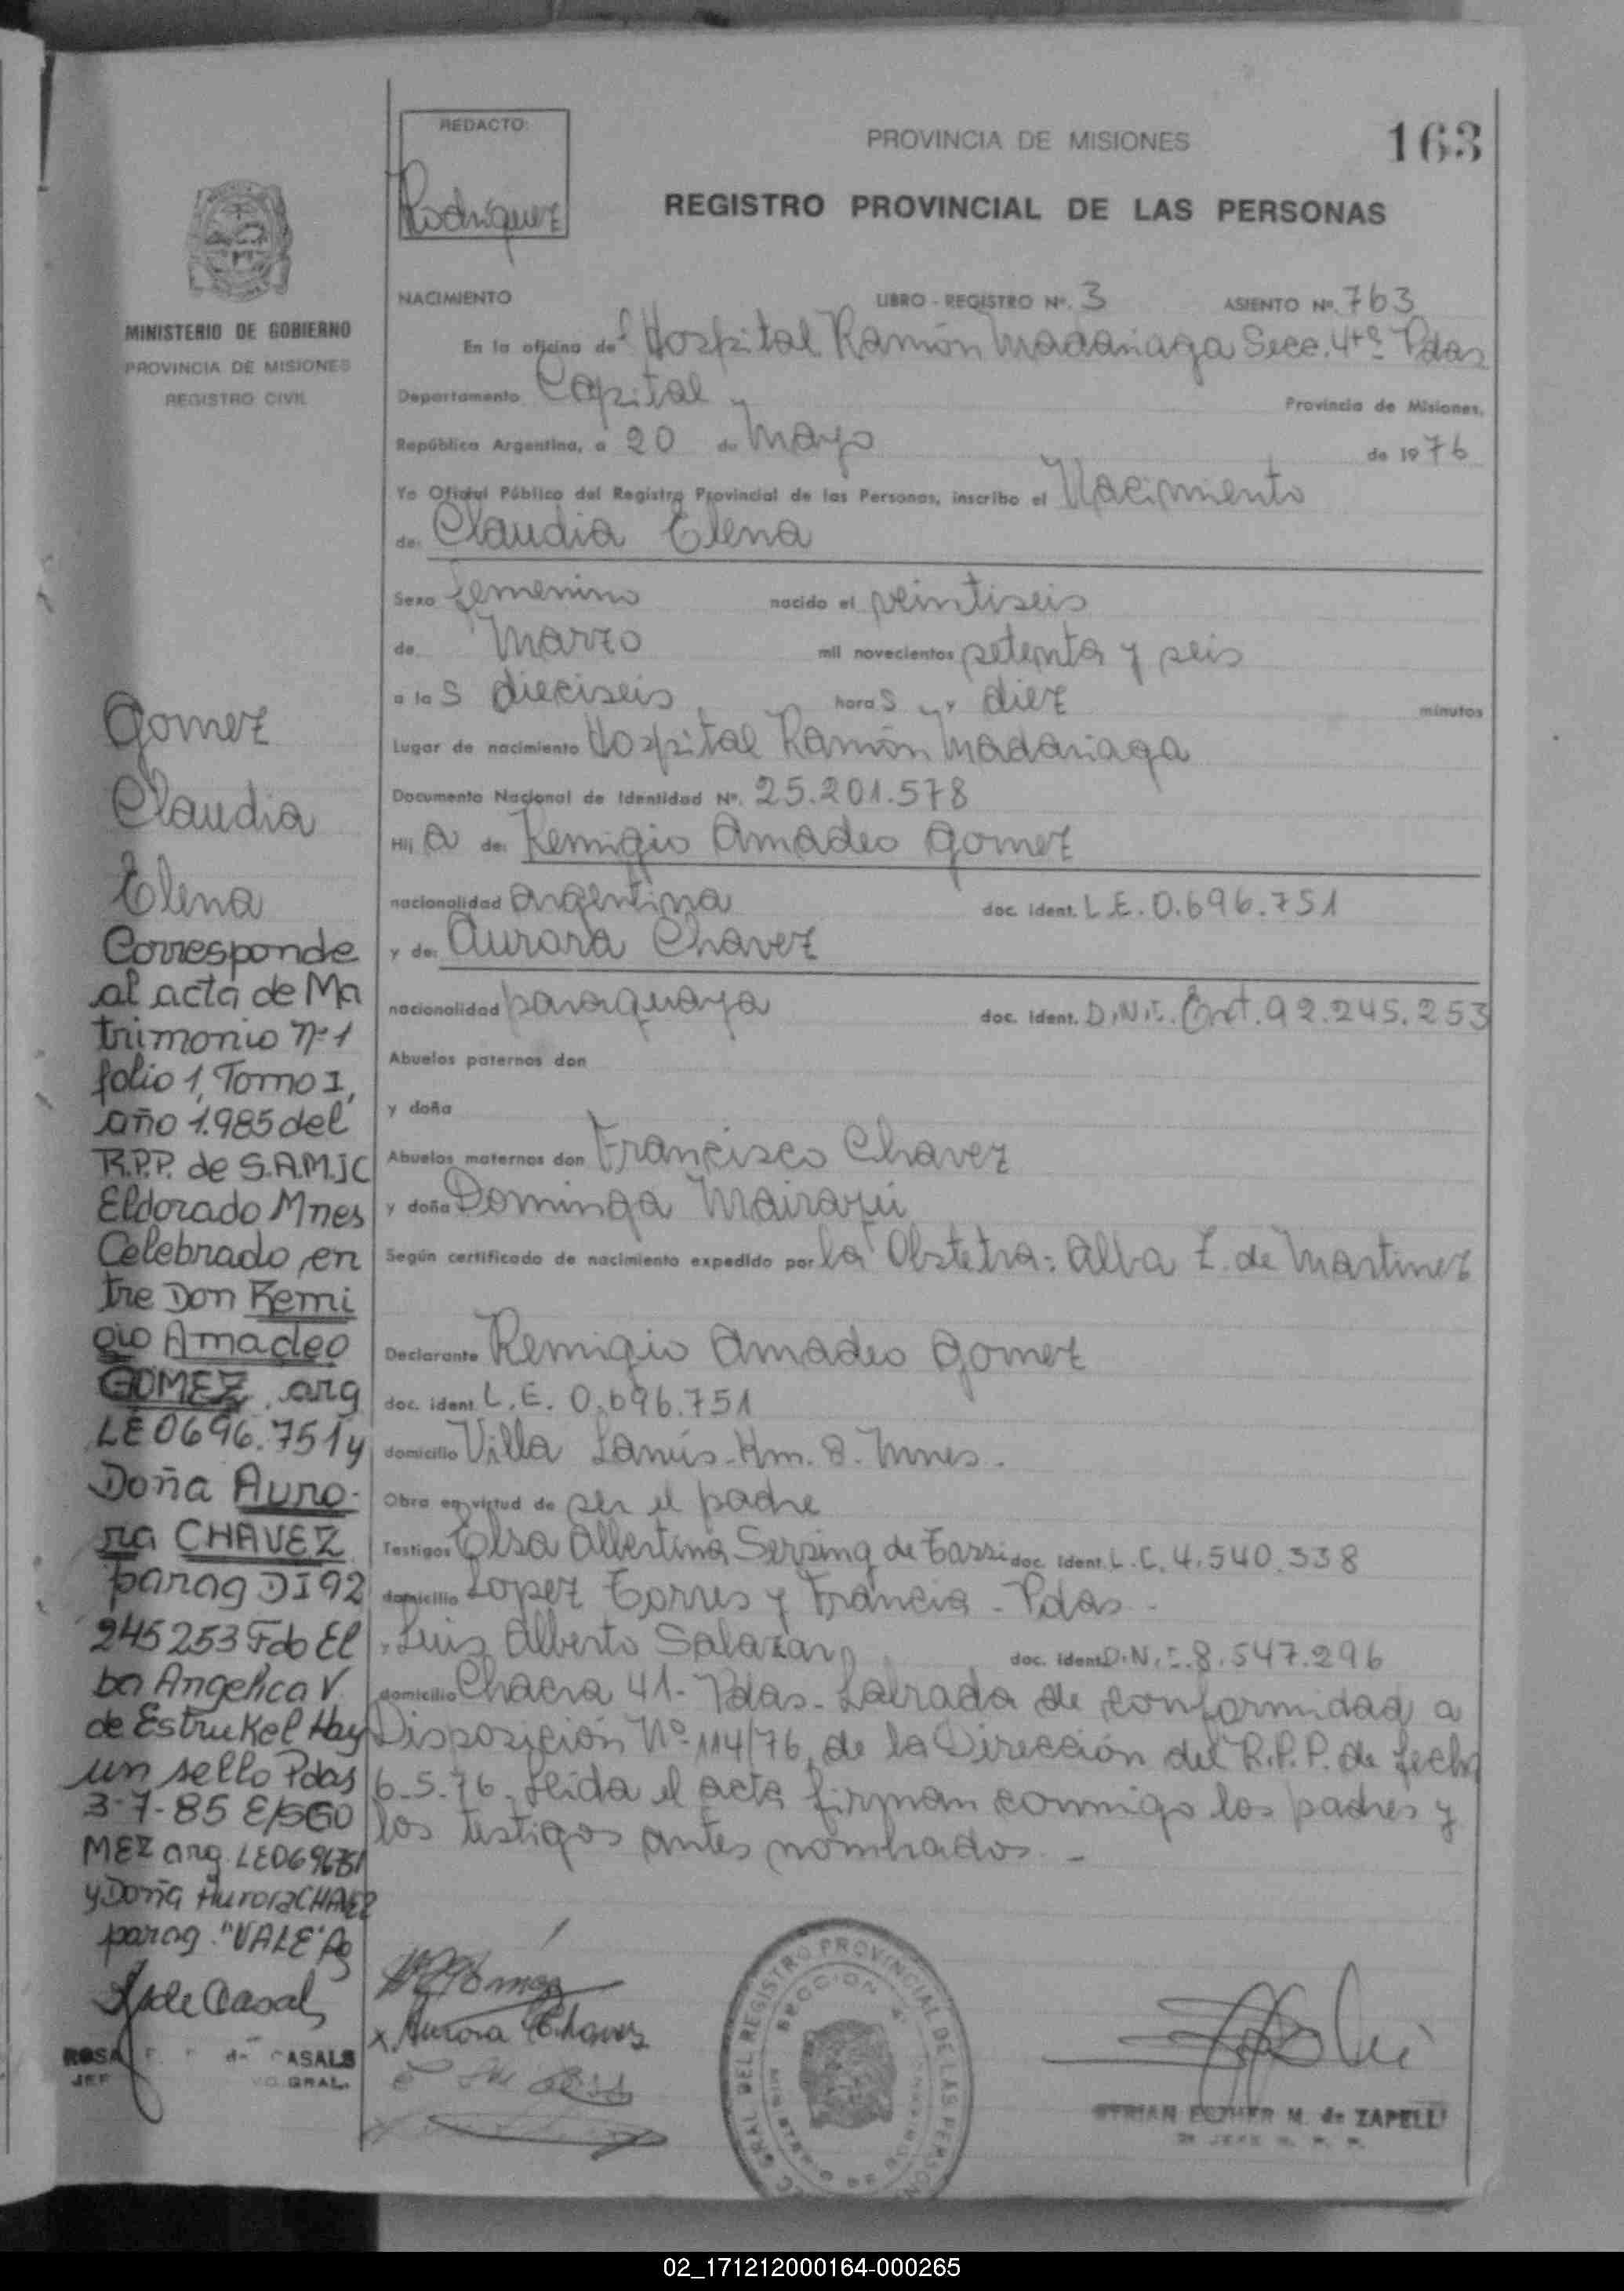 REDACTO:
Rodríguez
PROVINCIA DE MISIONES
163
REGISTRO PROVINCIAL DE LAS PERSONAS
MINISTERIO DE GOBIERNO
PROVINCIA DE MISIONES
REGISTRO CIVIL
NACIMIENTO
LIBRO - REGISTRO Nº. 3
ASIENTO Nº. 763
En la oficina del Hospital Ramón Madariaga Secc. 4ta Pdas
Departamento Capital
Provincia de Misiones,
República Argentina, a 20 de Mayo de 1976
Yo Oficial Público del Registro Provincial de las Personas, inscribo el Nacimiento
de: Claudia Elena
Sexo femenino nacido el veintiseis
de Marzo mil novecientos setenta y seis
a las dieciseis horas y diez minutos
Lugar de nacimiento Hospital Ramón Madariaga
Documento Nacional de Identidad Nº. 25.201.578
Hija de: Remigio Amadeo Gomez
nacionalidad argentina doc. ident. L.E. 0.696.751
y de: Aurora Chavez
nacionalidad paraguaya doc. ident. D.N.I. Ext. 92.245.253
Abuelos paternos don
y doña
Abuelos maternos don Francisco Chavez
y doña Dominga
Según certificado de nacimiento expedido por la Obstetra: Alba Z. de Martinez
Declarante Remigio Amadeo Gomez
doc. ident. L.E. 0.696.751
domicilio Villa Lanús - Km. 8. Mnes.
Obra en virtud de ser el padre
Testigos Elsa Albertina de doc. ident. L.C. 4.540.338
domicilio Lopez Torres y Francia - Pdas -
y Luis Alberto Salazar doc. ident. D.N.I. 8.547.296
domicilio Chacra 41 - Pdas - Labrada de conformidad a
Disposición Nº 114/76, de la Dirección del R.P.P. de fecha
6.5.76. Leída el acta firman conmigo los padres y
los testigos antes nombrados. -
Gomez
Claudia
Elena
Corresponde
al acta de Ma
trimonio nº 1
folio 1, Tomo I,
año 1.985 del
R.P.P. de S.A.M.IC
Eldorado Mnes
Celebrado en
tre Don Remi
gio Amadeo
GOMEZ, arg
LE 0696.751 y
Doña Auro-
ra CHAVEZ
parag DI 92
245253 Fdo El
ba Angelica V.
de Estrukel Hay
un sello Pdas
3-7-85 E/s GO
MEZ arg. LE0696751
y Doña Aurora CHAVEZ
parag. "VALE"
de Casals
ROSA de CASALS
GRAL.
Gómez
x Aurora Chavez
GRAL DEL REGISTRO PROVINCIAL DE LAS PERSON
SECCION 4
MYRIAN ESTHER M. de ZAPELLI
02_171212000164-000265